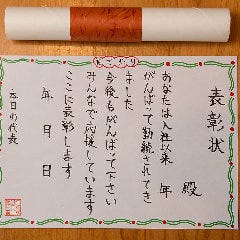 表彰状
殿
あなたは入社以来 年
がんばって勤続されてき
ました
今後もがんばって下さい
みんなで応援しています
ここに表彰します
年 月 日
本日の代表